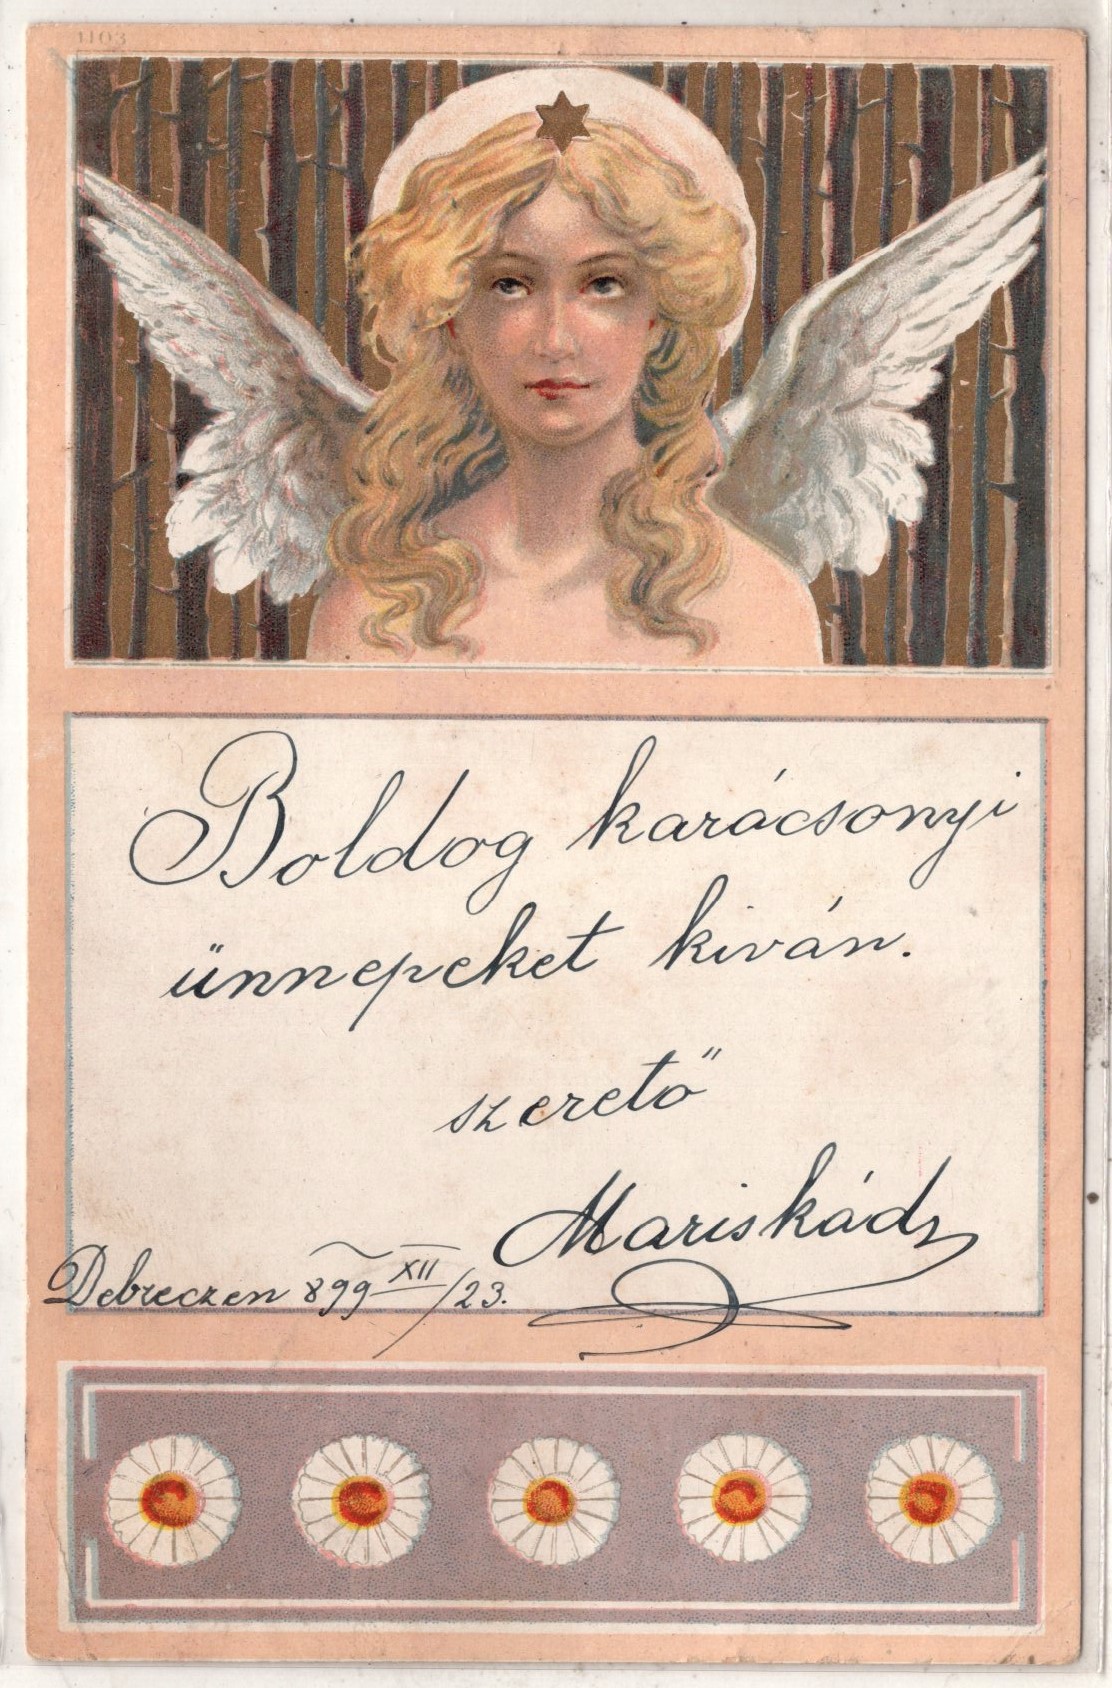 1103
Boldog karácsonyi
ünnepeket kiván.
szerető
Mariskád
Debreczen 899 XII/23.